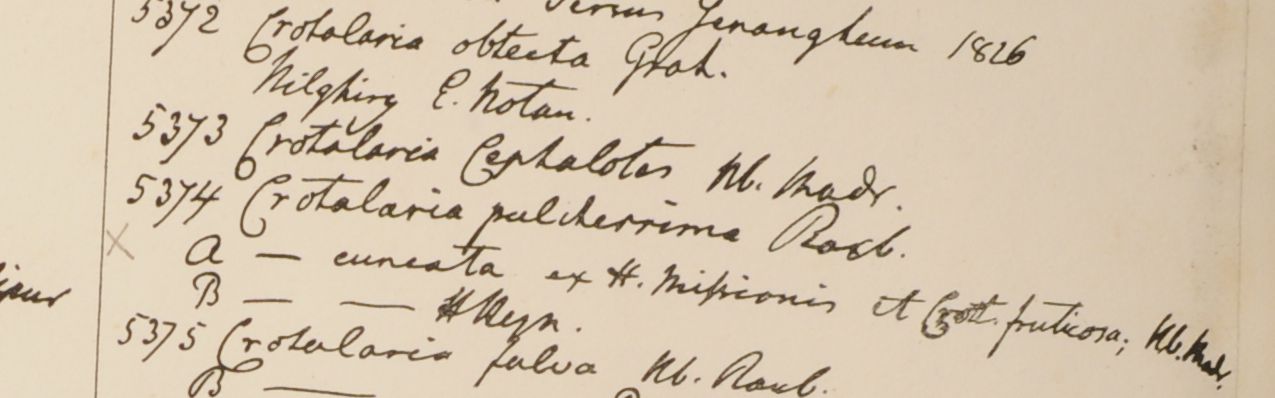 Versus Jenangheum 1826
5372 Crotalaria obtecta Grah.
Nilghiry E. Notan.
5373 Crotalaria Cephalotes Hb. Madr.
5374 Crotalaria pulcherrima Roxb.
A — cuneata ex H. Missionis et Crot. fruticosa; Hb. Madr.
B — — H Heyn.
5375 Crotalaria fulva Hb. Roxb.
B —